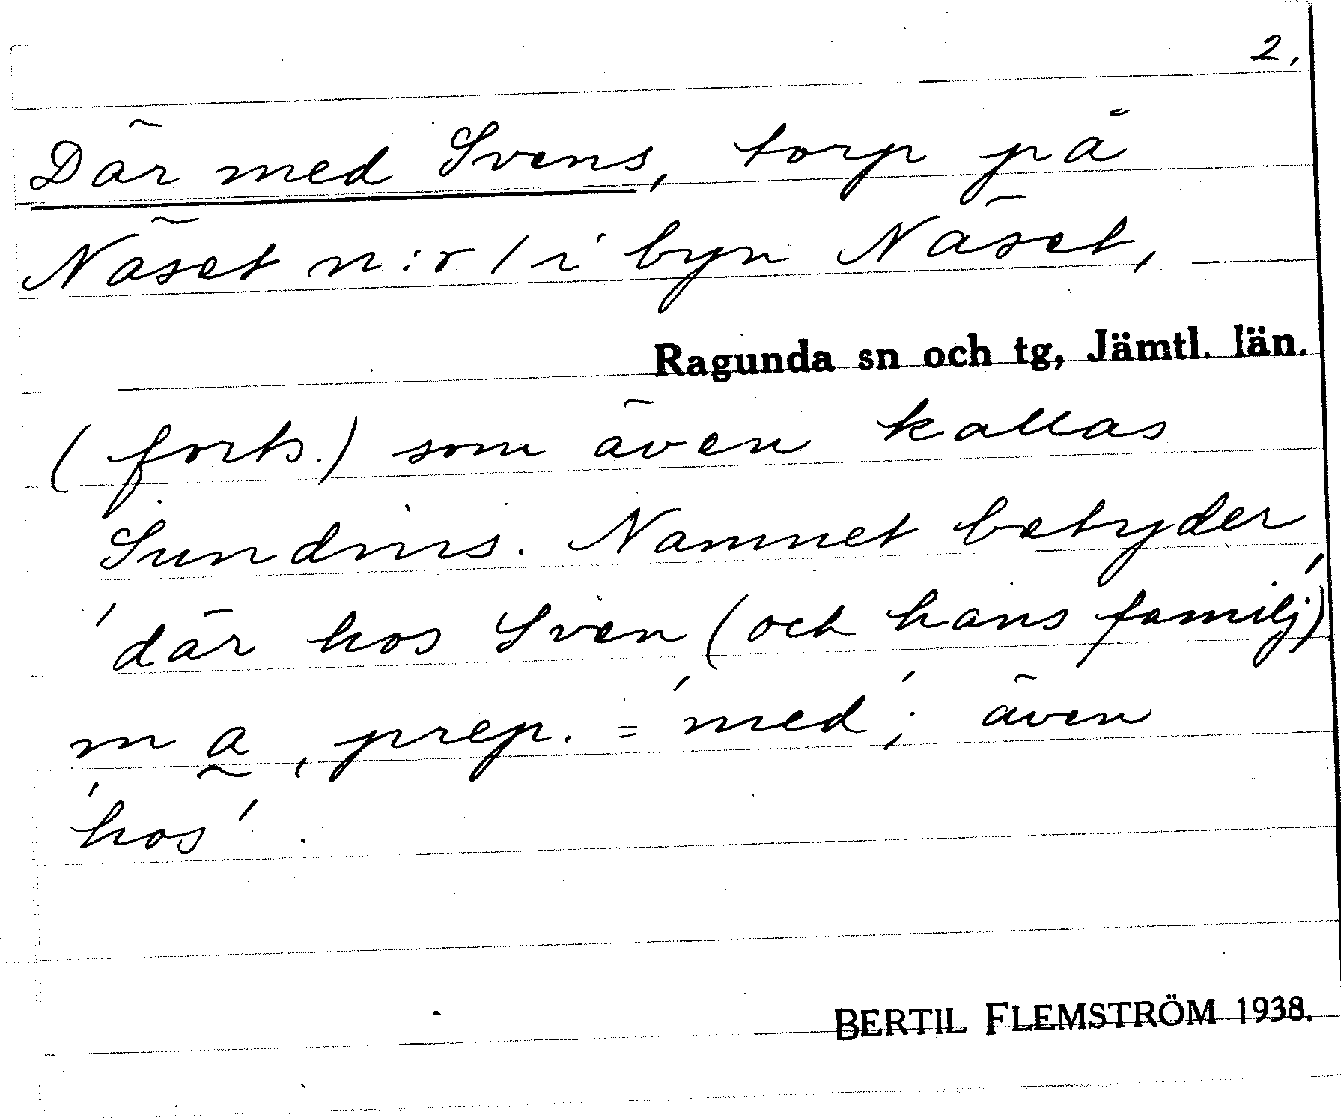 2.
Där med Svens, torp på
Näset n:r 1 i byn Näset,
Ragunda sn och tg, Jämtl. län.
(forts.) som även kallas
Sundins. Namnet betyder
'där hos Sven (och hans familj)'
ma̰, prep. = 'med'; även
'hos'.
BERTIL FLEMSTRÖM 1938.